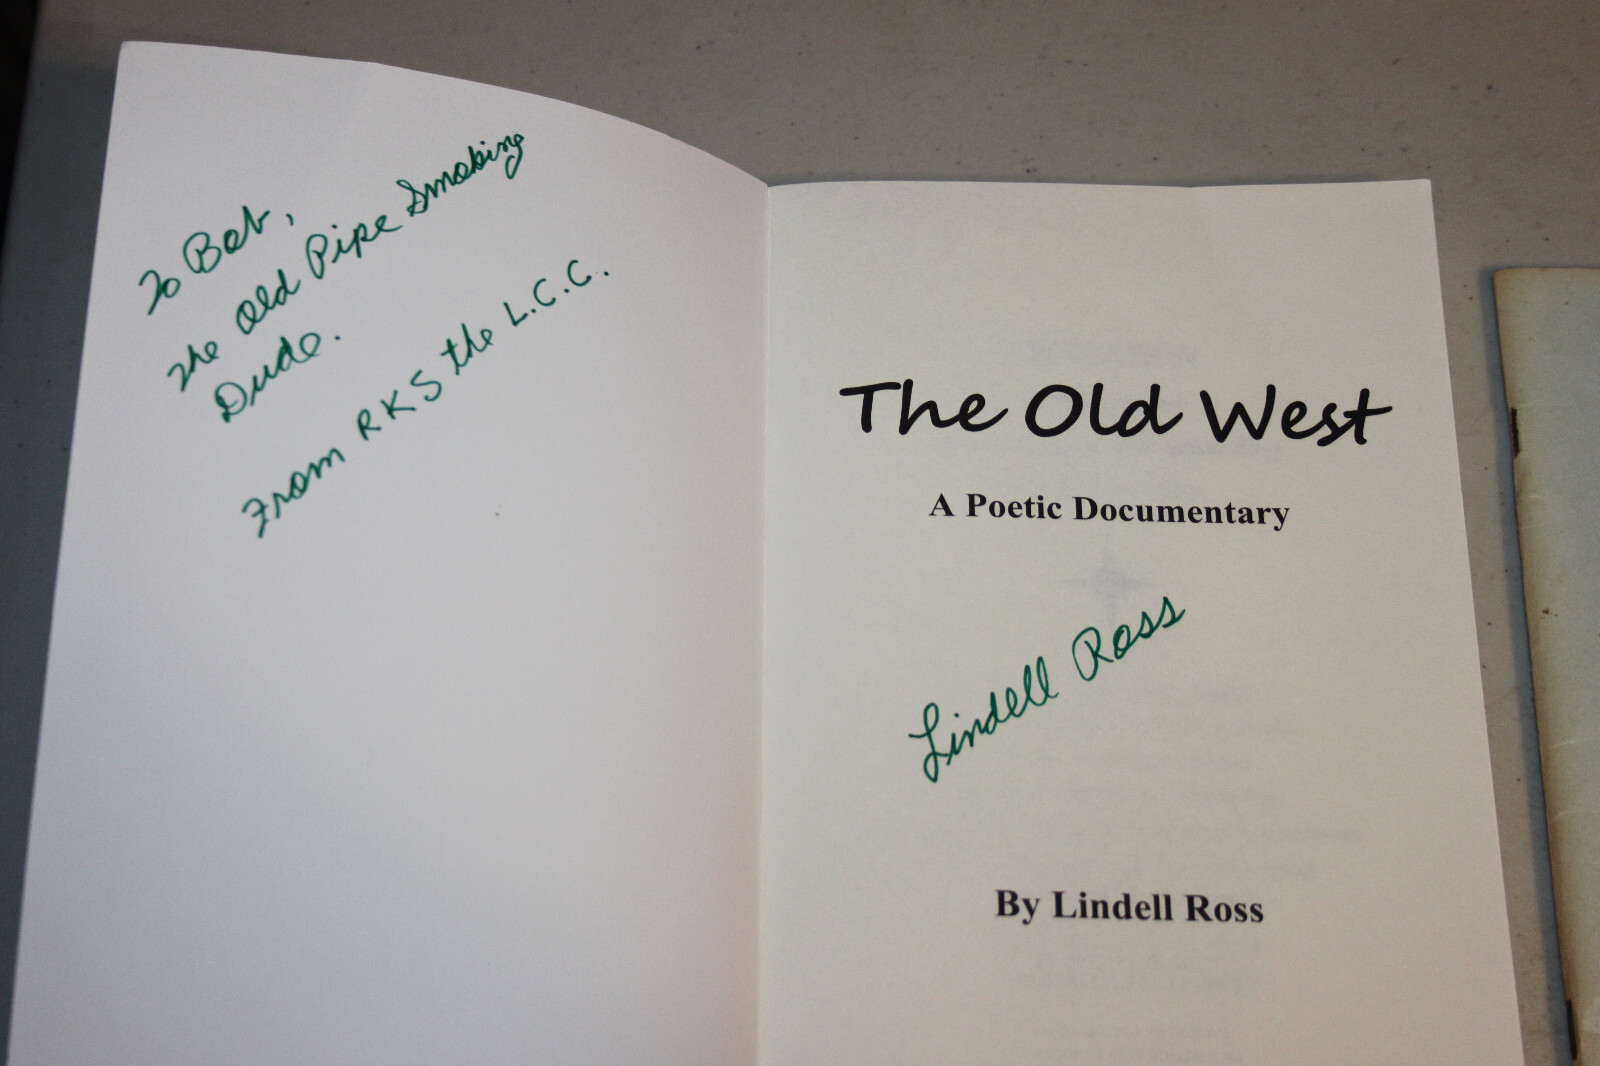 To Bob,
The Old Pipe Smoking
Dude.
From RKS the L.C.C.
The Old West
A Poetic Documentary
Lindell Ross
By Lindell Ross